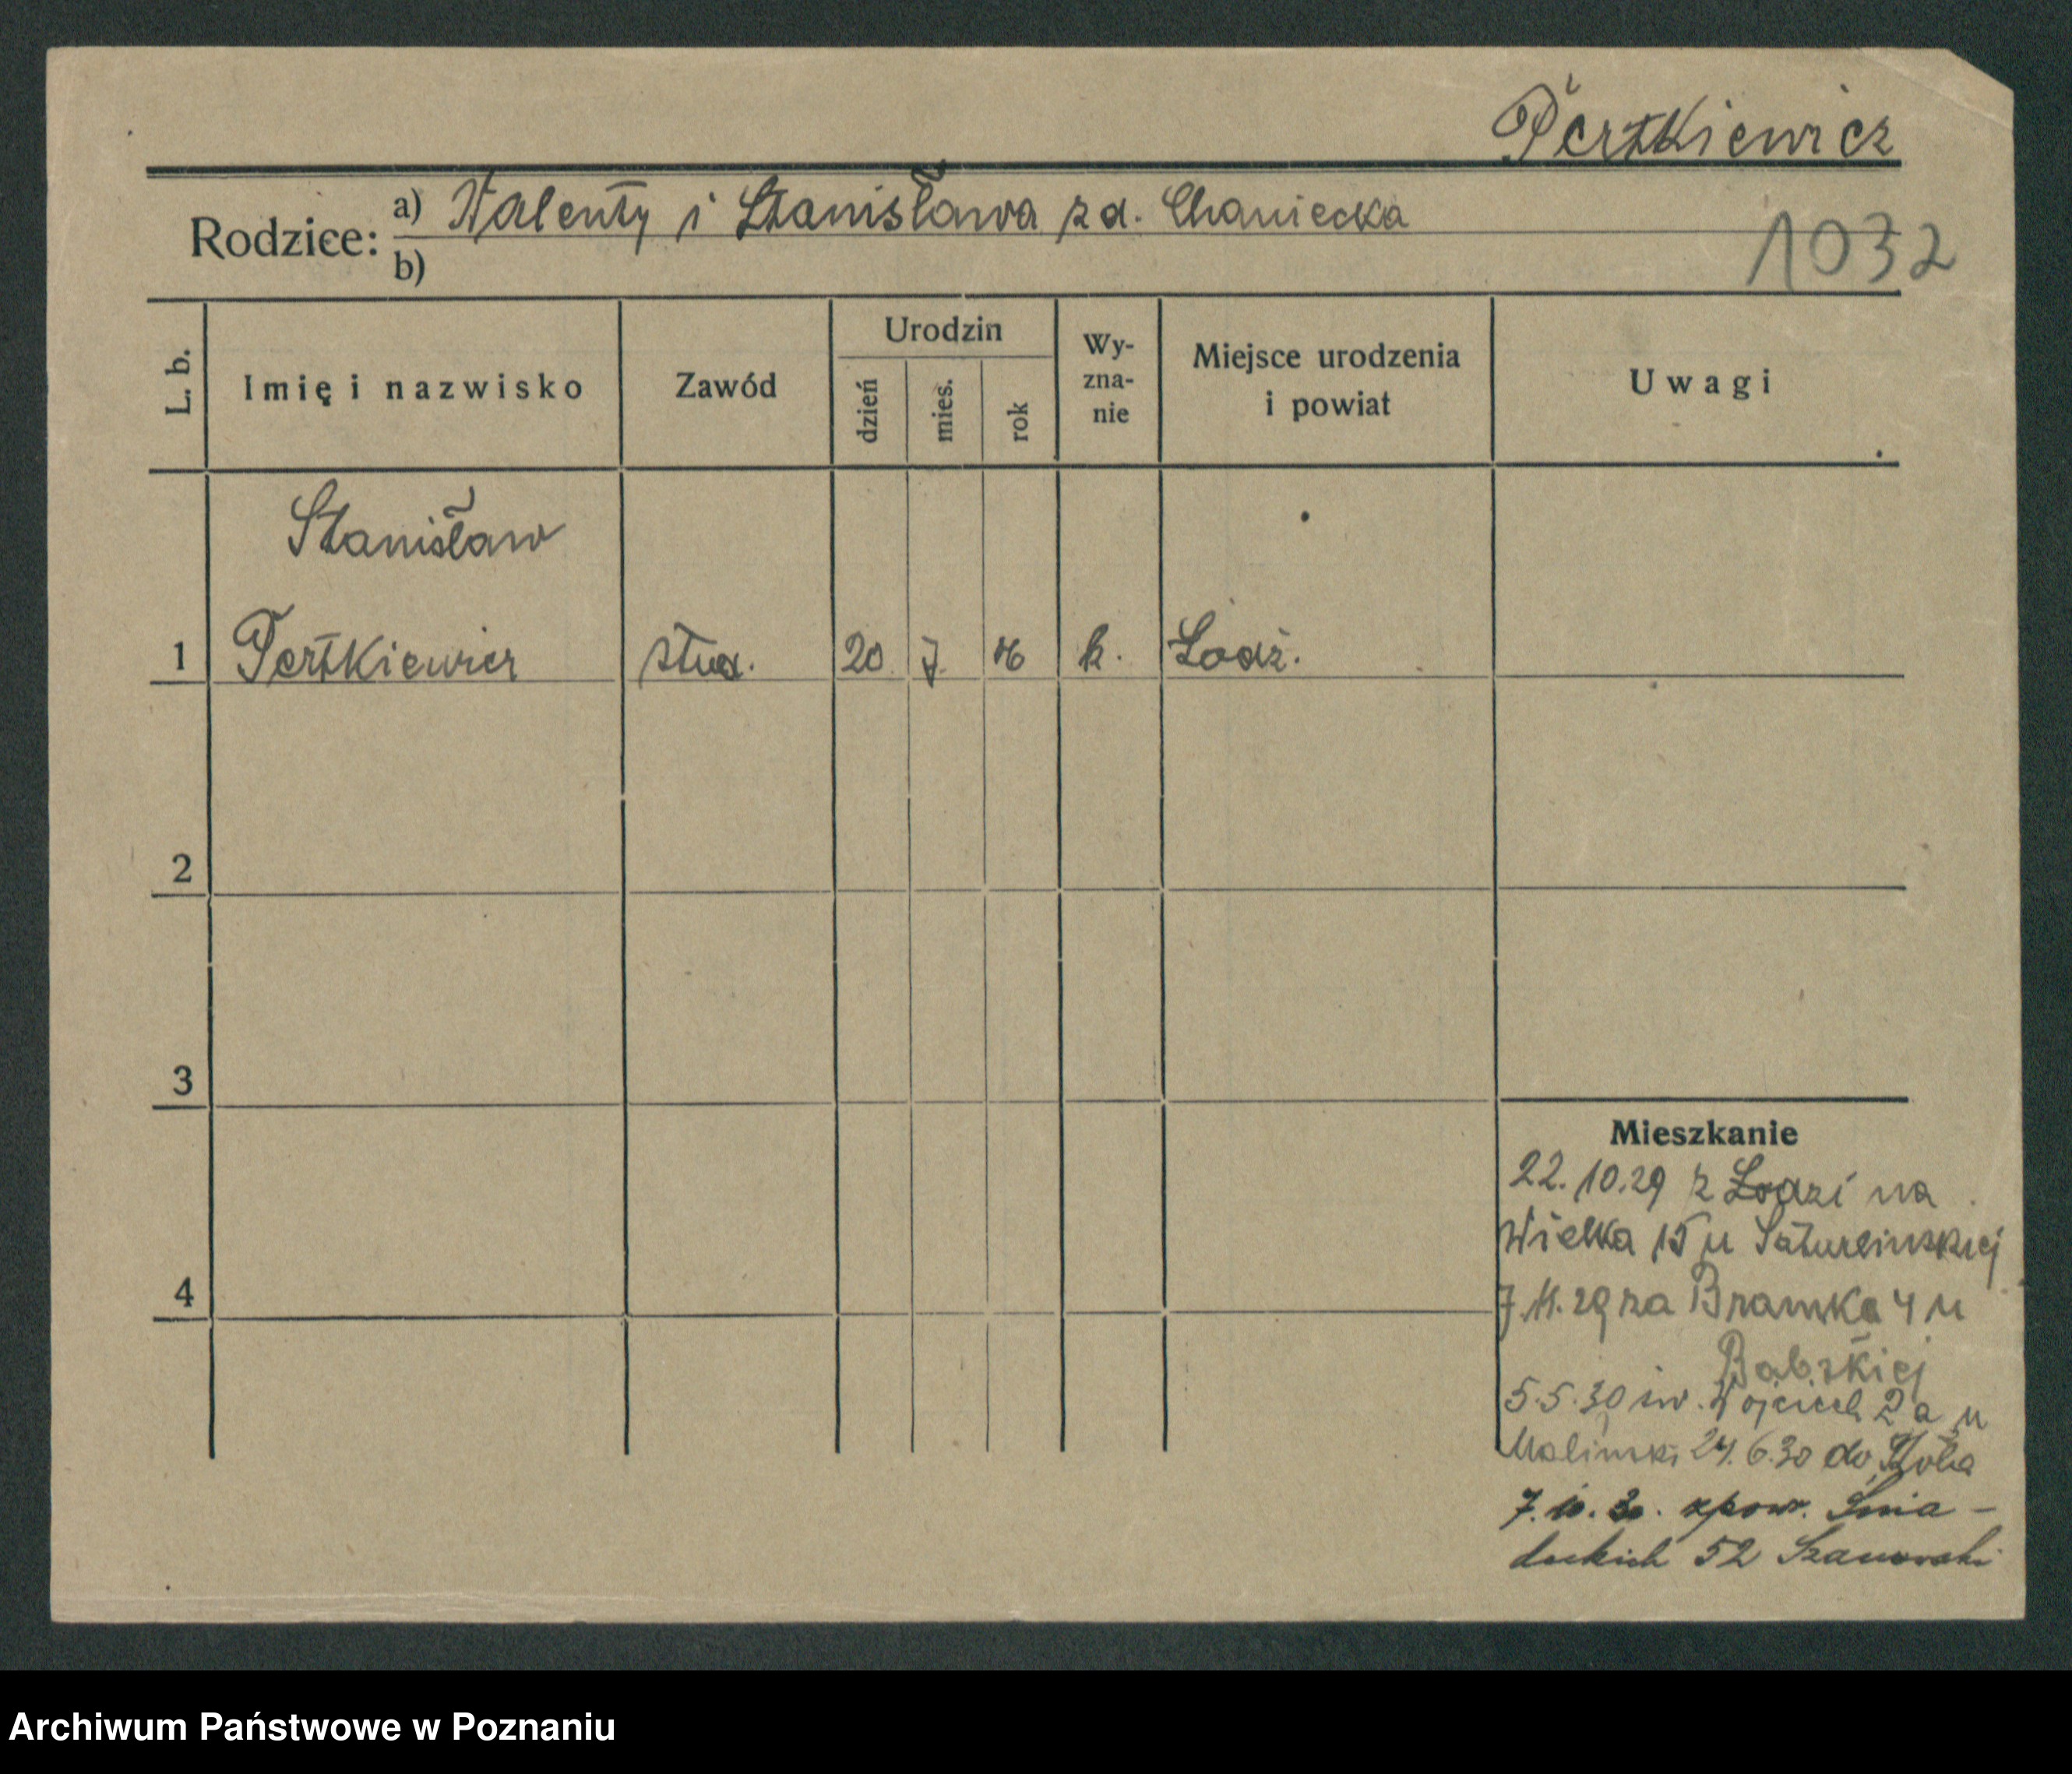 Pertkiewicz
Rodzice: a) Walenty i Stanisława z d. Chaniecka
b)
1032
L. b. Imię i nazwisko Zawód Urodzin dzień mies. rok Wy-zna-nie Miejsce urodzenia i powiat Uwagi
Stanisław
1 Pertkiewicz stud. 20 7. k. Łódź.
2
3
4
Mieszkanie
22.10.29 z Łodzi na
Wielka 15 u
7.11.29 za Bramka 4 u
Babskiej
5.5.30 św. Wojciech 2a u
Malinski 24.6.30 do Koła
7.10.30. zpow. Śnia-
deckich 52 Szanowski
Archiwum Państwowe w Poznaniu